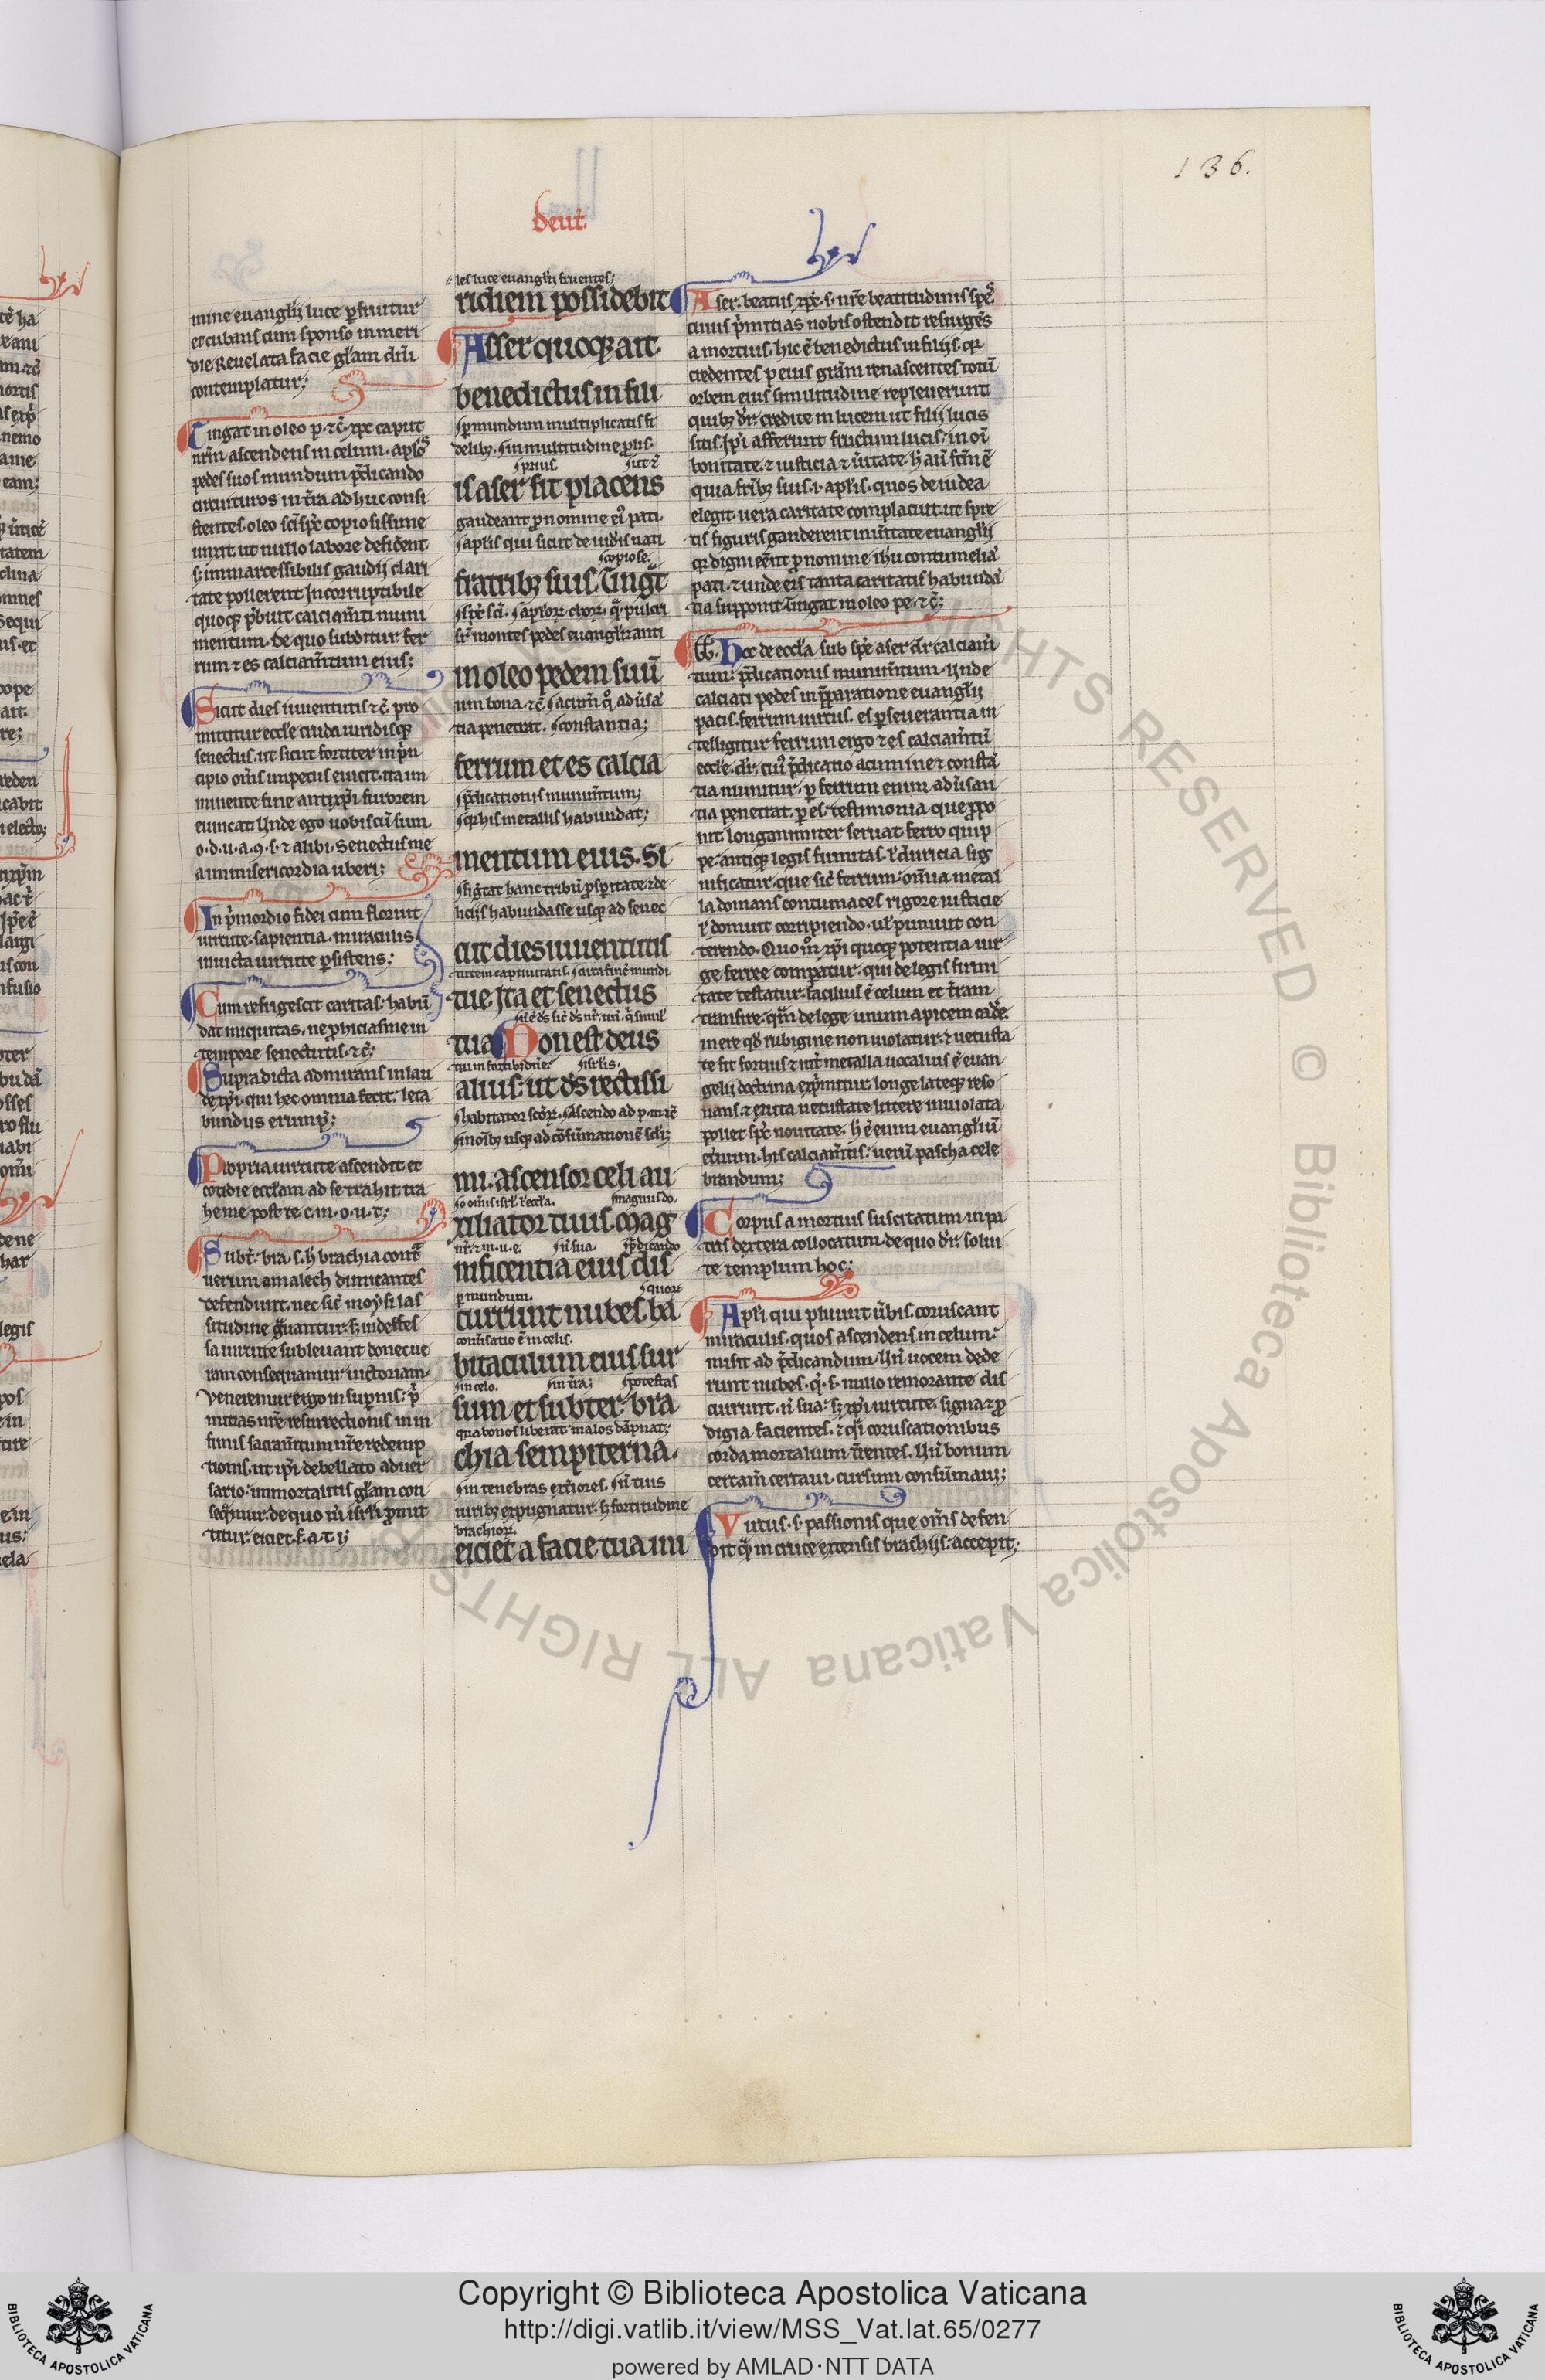 136.
deut̄.
mine euangłij luce ꝑfruitur
et cubans cum sponso in meri
die reuelata facie głam dn̄i
contemplatur;
Tingat in oleo p. ⁊c̄. xp̄c caput
nr̄m ascendens in celum. apłos
pedes suos mundum p̄dicando
circuituros in t̄ra adhuc consi
stentes. oleo sc̄i sp̄c copiosissime
unxit. ut nullo labore deficerent
s; immarcessibilis gaudij clari
tate pollerent. Incorruptibile
quoqꝫ p̄buit calciam̄ti muni
mentum. de quo subditur. fer
rum ⁊ es calciam̄tum eius;
Sicut dies iuuentutis ⁊c̄. pro
mittitur eccłe cruda uiridisqꝫ
senectus. ut sicut fortiter in p̄n
cipio om̄s impetus euicit. ita im
minente fine antixp̄i furorem
euincat. Unde ego uobiscū sum.
o. d. u. a. 9. s. ⁊ alibi. Senectus me
a in misericordia uberi;
In p̄mordio fidei cum floruit
uirtute. sapientia. miraculis.
inuicta uirtute ꝑsistens;
Cum refrigescit caritas. habū
dat iniquitas. ne ꝓiicias me in
tempore senectutis. ⁊c̄.
Supradicta admirans in lau
de xp̄i. qui hec omnia fecit. leta
bundus erump̄;
Propria uirtute ascendit et
cotidie eccłam ad se trahit. tra
he me post te c. in. o. u. t;
Subt̄. bra. s. h̄ brachia cont̄
uerum amalech dimicantes
defendunt. nec sic̄ moysi las
situdine g̃uantur. s; indefes
sa uirtute subleuant donec ue
ram consequamur uictoriam.
Veneremur ergo in supernis. p̄
mitias nr̄e resurrectionis in in
fimis sacram̄tum nr̄e redemp
tionis. ut xp̄i debellato aduer
sario. immortalitatis głam con
seq̄mur. de quo ui. isrłi ꝓmit
titur. eiciet. &. a. t. i;
les luce euangłij fruentes;
ridiem possidebit
Asser quoqꝫ ait.
benedictus in fili
s. ꝑ mundum multiplicatis fi
delibꝫ. s. in multitudine ꝓlis.
is aser sit placens
gaudeant ꝓ nomine ei9 pati.
s. apłis qui sicut de iud̄is nati
s. copiose.
fratribꝫ suis. Tingat
s. sp̄c sc̄i. s. apłorꝫ. chorꝫ. q̄ pulcri
sr̄ montes pedes euangłizanti
in oleo pedem suū
um bona. ⁊c̄. s. acum̄. q̊ aduersa
tia penetrat. s. constantia;
ferrum et es calcia
s. p̄dicationis munim̄tum;
s. qꝫ his metallis habundat;
mentum eius. Si
s. sig̃tat hanc tribū ꝓsꝑitate ⁊ de
licijs habundasse usqꝫ ad senec
cut dies iuuentutis
tutem captiuitatis. s. circa finē mundi
tue. Ita et senectus
tua Non est deus
s. isrłis.
alius. ut ds̄ rectissi
s. habitator sc̄orꝫ. s. ascendo ad p. m. ⁊c̄
s. in oībꝫ usqꝫ ad cōsūmationē scłi;
mi. ascensor celi au
s. magnitudo.
xiliator tuus. Mag
s. p̄dicando
nificentia eius dis
ꝑ mundum. s. quorꝫ
currunt nubes. ha
conū̄satio ē in celis.
bitaculum eius sur
s. in celo. s. in t̄ra; s. potestas
sum et subter. bra
qua bonos liberat malos dāpnat;
chia sempiterna.
s. in tenebras ext̄iores. s. n̄ tuis
uiribꝫ expugnatur. s; fortitudine
brachiorꝫ.
eiciet a facie tua ini
Aser. beatus. xp̄c. s. nr̄e beatitudinis spēs
cuius p̄mitias nobis ostendit resurgēs
a mortuis. hic ē benedictus in filijs. qꝫ
credentes ꝑ eius grām renascentes totū
orbem eius similitudine repleuerunt.
quibꝫ dr̄. credite in lucem ut filij lucis
sitis. Ip̄i afferunt fructum lucis. in oī
bonitate. ⁊ iusticia ⁊ ū̄itate. h̄ aū̄ fc̄m ē
quia fr̄ibꝫ suis. i. apłis. quos de iudea
elegit. uera caritate complacuit. ut spre
tis figuris gauderent in ū̄itate euangłij
qꝫ digni eēnt ꝓ nomine ihū contumeliā
pati. ⁊ unde eis tanta caritatis habundā
tia supponit. Tingat in oleo pe. ⁊c̄;
Hoc de eccła sub spe aser dr̄. calciam̄
tum. p̄dicationis munim̄tum. Unde
calciati pedes in p̄paratione euangłij
pacis. ferrum uirtus. es ꝑseuerantia in
telligitur. ferrum ergo ⁊ es calciam̄tū
eccłe. dr̄. cui9 p̄dicatio acumine ⁊ constā
tia munitur. ꝑ ferrum enim aduersan
tia penetrat. ꝑ es. testimonia que ꝓpo
nit longanimiter seruat. ferro quip
pe. antique legis firmitas. ł duricia sig
nificatur. que sic̄ ferrum. om̄ia metal
la domans contumaces rigore iusticie
ł domuit corripiendo. uł puniuit con
terendo. Quom̊ xp̄i quoqꝫ potentia uir
ge ferree comparatur. qui de legis firmi
tate testatur. facilius ē celum et t̄ram
transire. q̄m de lege unum apicem cade̅.
in ere qd̄ rubigine non uiolatur. ⁊ uetusta
te fit fortius ⁊ int̄ metalla uocalius ē euan
gelij doctrina exp̄mitur. longe lateqꝫ reso
nans. ⁊ exuta uetustate littere inuiolata
pollet sp̄c nouitate. h̄ ē enim euangłiū
et̄num. his calciam̄tis. uerū pascha cele
brandum;
Corpus a mortuis suscitatum. in pa
tris dextera collocatum. de quo dr̄. solui
te templum hoc;
Apłi qui pluunt ū̄bis. coruscant
miraculis. quos ascendens in celum.
misit ad p̄dicandum. Un̄ uocem dede
runt nubes. q̄. s. nullo remorante dis
currunt. n̄ sua. s; xp̄i uirtute. signa ⁊ ꝓ
digia facientes. ⁊ q̄si coruscationibus
corda mortalium t̄rentes. Un̄ bonum
certam̄ certaui. cursum consūmaui;
Virtus. s. passionis que om̄s defen
dit. qꝫ in cruce extensis brachijs. accepit;
Copyright © Biblioteca Apostolica Vaticana
http://digi.vatlib.it/view/MSS_Vat.lat.65/0277
powered by AMLAD·NTT DATA
BIBLIOTECA APOSTOLICA VATICANA
BIBLIOTECA APOSTOLICA VATICANA
ALL RIGHTS RESERVED © Biblioteca Apostolica Vaticana